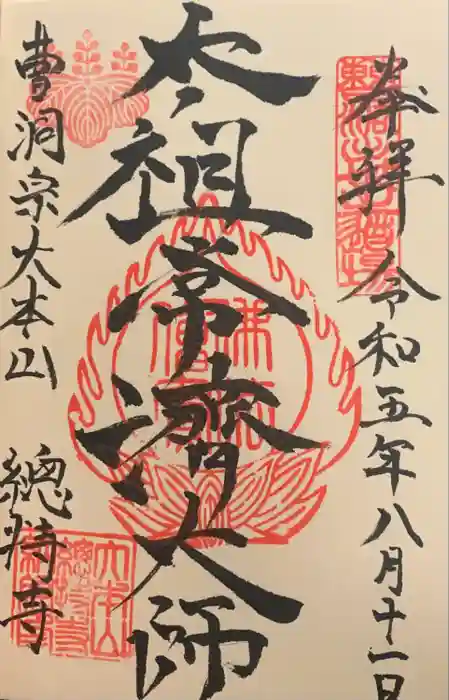 奉拝 令和五年八月十一日
太祖常濟大師
曹洞宗大本山 總持寺